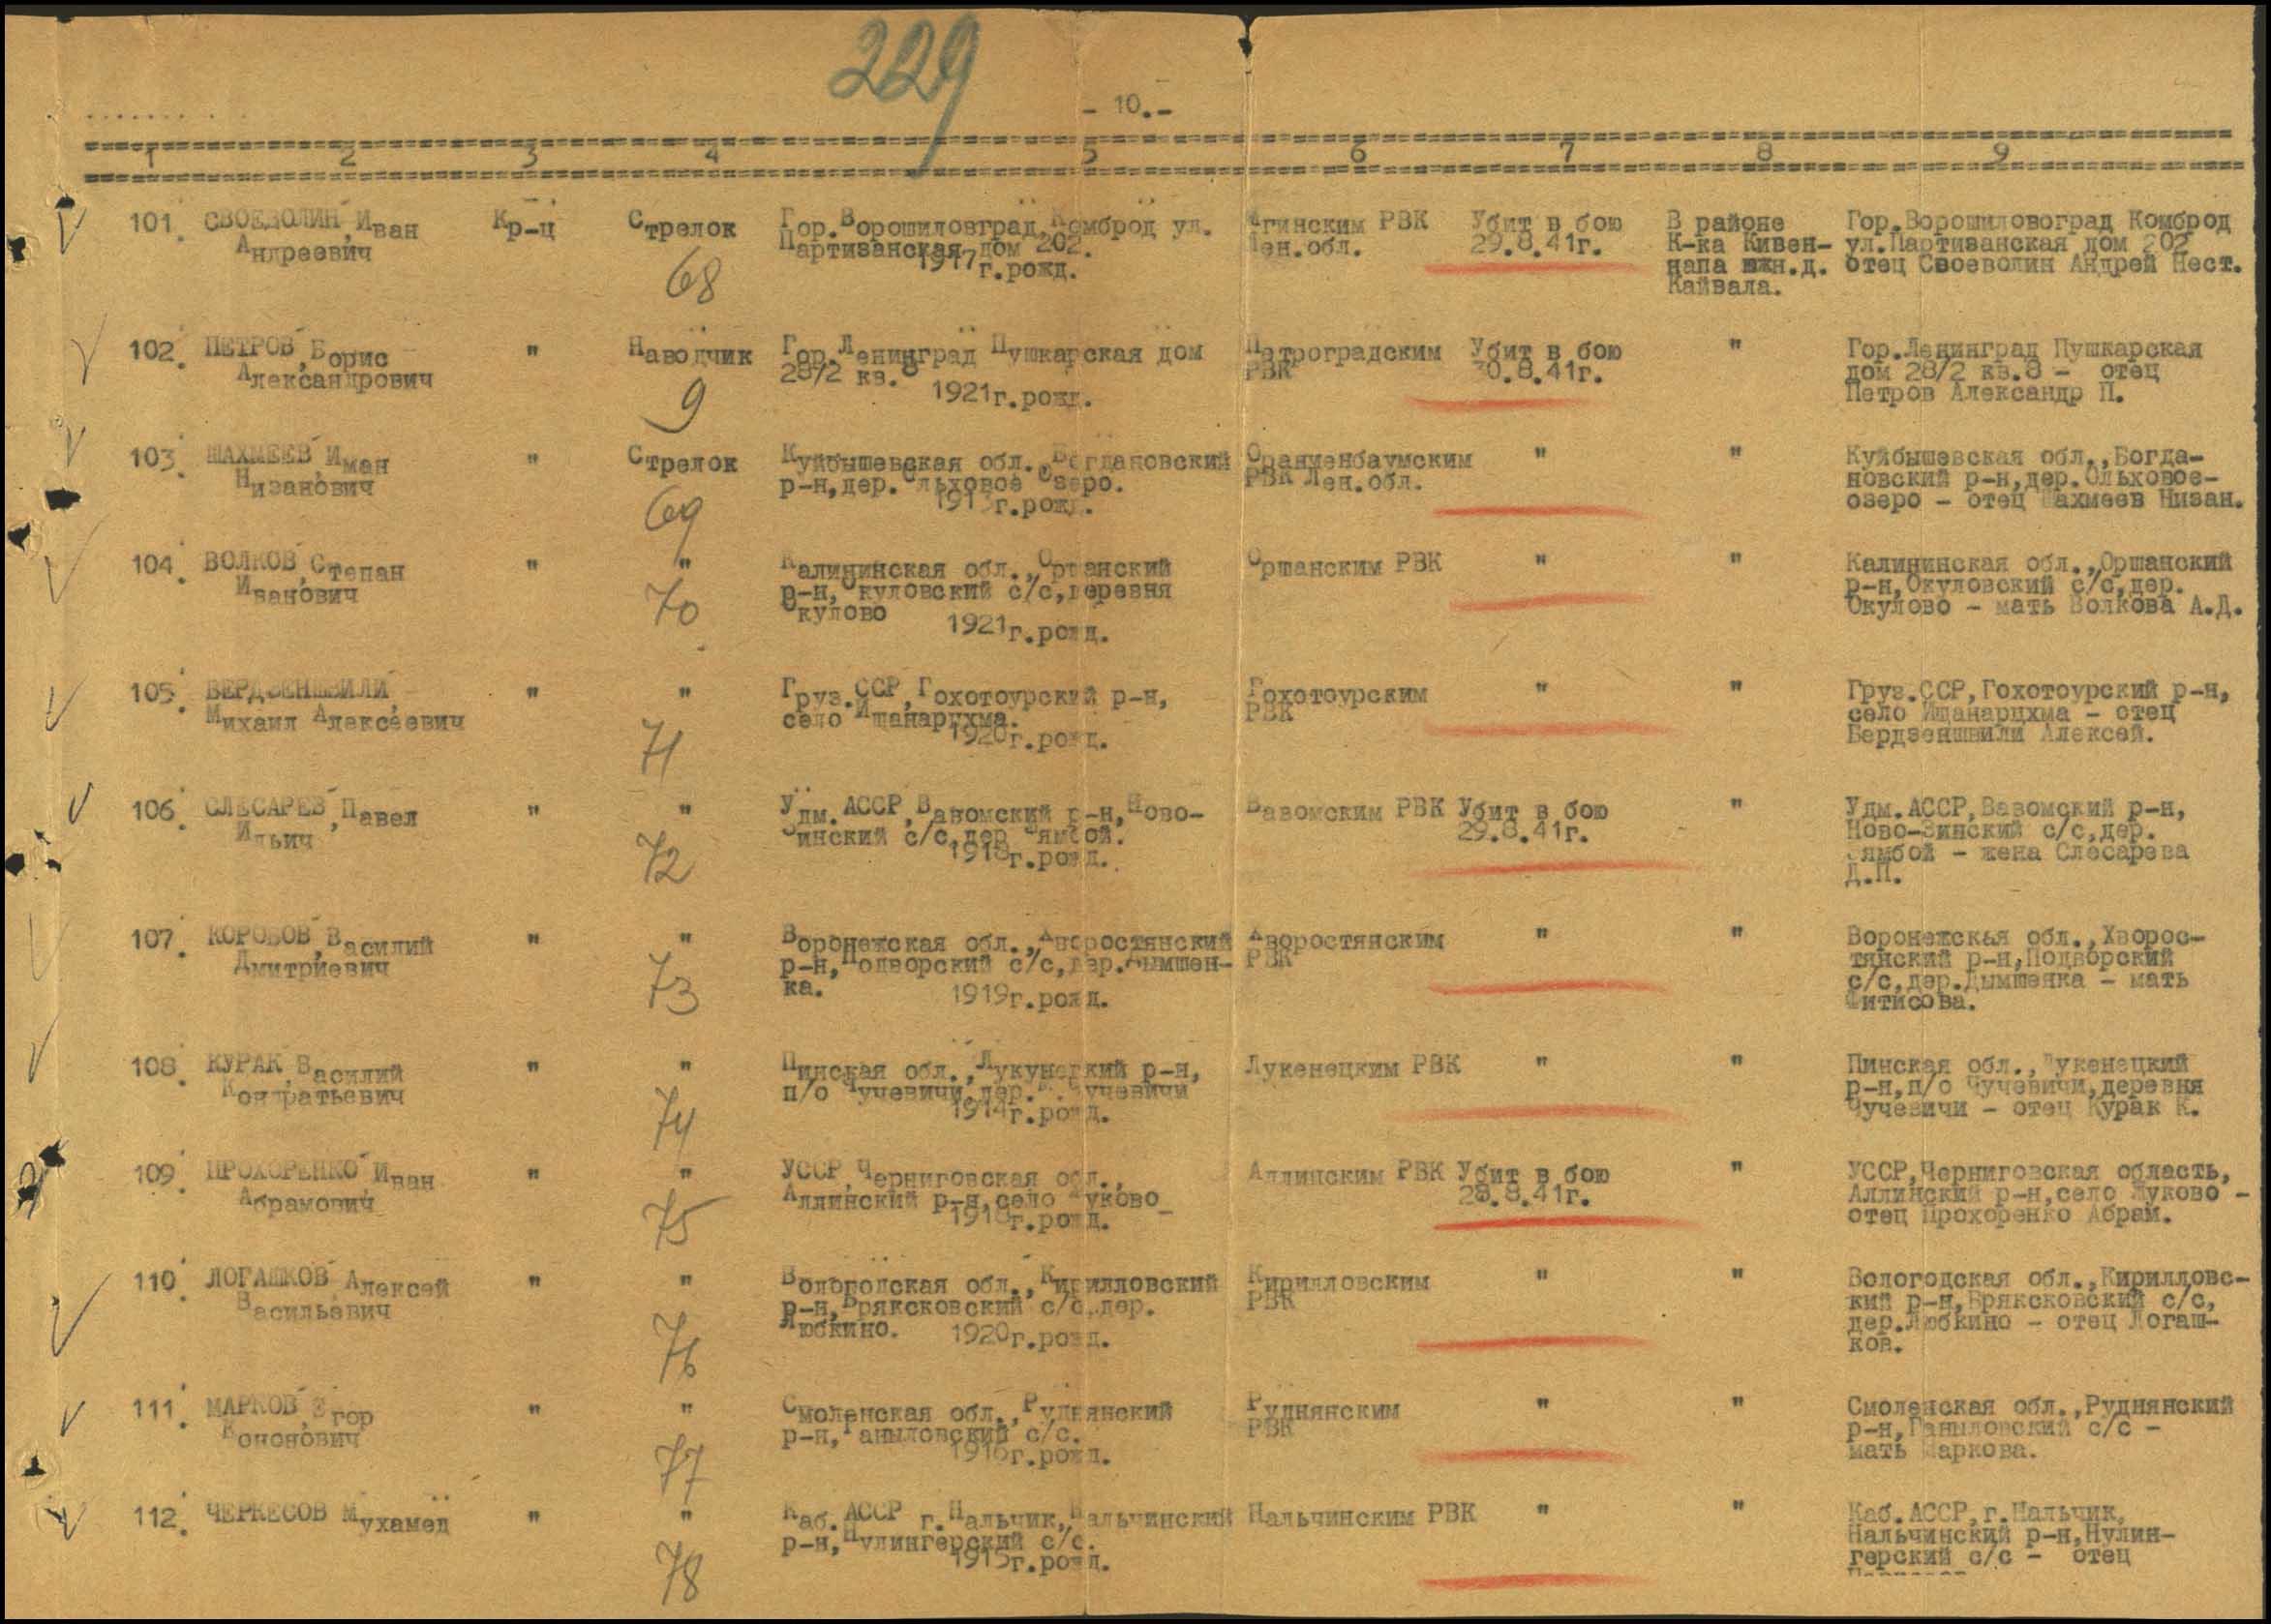 229
- 10.-
1 2 3 4 5 6 7 8 9
101. СВОЕВОЛИН Иван Кр-ц Стрелок Гор.Ворошиловград, Комброд ул. Мгинским РВК Убит в бою В районе Гор.Ворошиловоград Комброд
Андреевич Партизанская дом 202. Лен.обл. 29.8.41г. К-ка Кивен- ул.Партизанская дом 202
68 1917г.рожд. напа южн.д. отец Своеволин Андрей Нест.
Кайвала.
102. ПЕТРОВ, Борис " Наводчик Гор.Ленинград Пушкарская дом Петроградским Убит в бою " Гор.Ленинград Пушкарская
Александрович 28/2 кв.8 РВК 30.8.41г. дом 28/2 кв.8 - отец
9 1921г.рожд. Петров Александр П.
103. ШАХМЕЕВ, Иман " Стрелок Куйбышевская обл. Богдановский Ораниенбаумским " " Куйбышевская обл.,Богда-
Низанович р-н,дер.Ольховое Озеро. РВК Лен.обл. новский р-н,дер.Ольховое-
69 г.рожд. озеро - отец Шахмеев Низан.
104. ВОЛКОВ, Степан " " Калининская обл.,Оршанский Оршанским РВК " " Калининская обл.,Оршанский
Иванович 70 р-н,Окуловский с/с,деревня р-н,Окуловский с/с,дер.
Окулово 1921г.рожд. Окулово - мать Волкова А.Д.
105. БЕРДЗЕНШВИЛИ, " " Груз.ССР,Гохотоурский р-н, Гохотоурским " " Груз.ССР,Гохотоурский р-н,
Михаил Алексеевич село Ищанарцхма. РВК село Ищанарцхма - отец
71 1920г.рожд. Бердзеншвили Алексей.
106. СЛЕСАРЕВ, Павел " " Удм.АССР,Вавомский р-н,Ново- Вавомским РВК Убит в бою " Удм.АССР,Вавомский р-н,
Ильич инский с/с,дер 29.8.41г. Ново-Зинский с/с,дер.
72 1918г.рожд. - жена Слесарева
Д.П.
107. КОРОБОВ, Василий " " Воронежская обл.,Хворостянский Хворостянским " " Воронежская обл.,Хворос-
Дмитриевич р-н,Подворский с/с,дер.Дымшен- РВК тянский р-н,Подворский
73 ка. 1919г.рожд. с/с,дер.Дымшенка - мать
Фитисова.
108. КУРАК, Василий " " Пинская обл.,Лукунецкий р-н, Лукенецким РВК " " Пинская обл.,Лукенецкий
Кондратьевич п/о Чучевичи,дер. Чучевичи р-н,п/о Чучевичи,деревня
74 1914г.рожд. Чучевичи - отец Курак К.
109. ПРОХОРЕНКО Иван " " УССР,Черниговская обл., Аллинским РВК Убит в бою " УССР,Черниговская область,
Абрамович Аллинский р-н,село Жуково 28.8.41г. Аллинский р-н,село Жуково -
75 1918г.рожд. отец Прохоренко Абрам.
110. ЛОГАШКОВ, Алексей " " Вологодская обл.,Кирилловский Кирилловским " " Вологодская обл.,Кирилловс-
Васильевич р-н,Бряксковский с/с,дер. РВК кий р-н,Бряксковский с/с,
76 Любкино. 1920г.рожд. дер.Любкино - отец Логаш-
ков.
111. МАРКОВ, Егор " " Смоленская обл.,Руднянский Руднянским " " Смоленская обл.,Руднянский
Кононович р-н,Ганыловский с/с. РВК р-н,Ганыловский с/с -
77 1916г.рожд. мать Маркова.
112. ЧЕРКЕСОВ Мухамед " " Каб.АССР г.Нальчик,Нальчинский Нальчинским РВК " " Каб.АССР,г.Нальчик,
р-н,Нулингерский с/с. Нальчинский р-н,Нулин-
78 1915г.рожд. герский с/с - отец